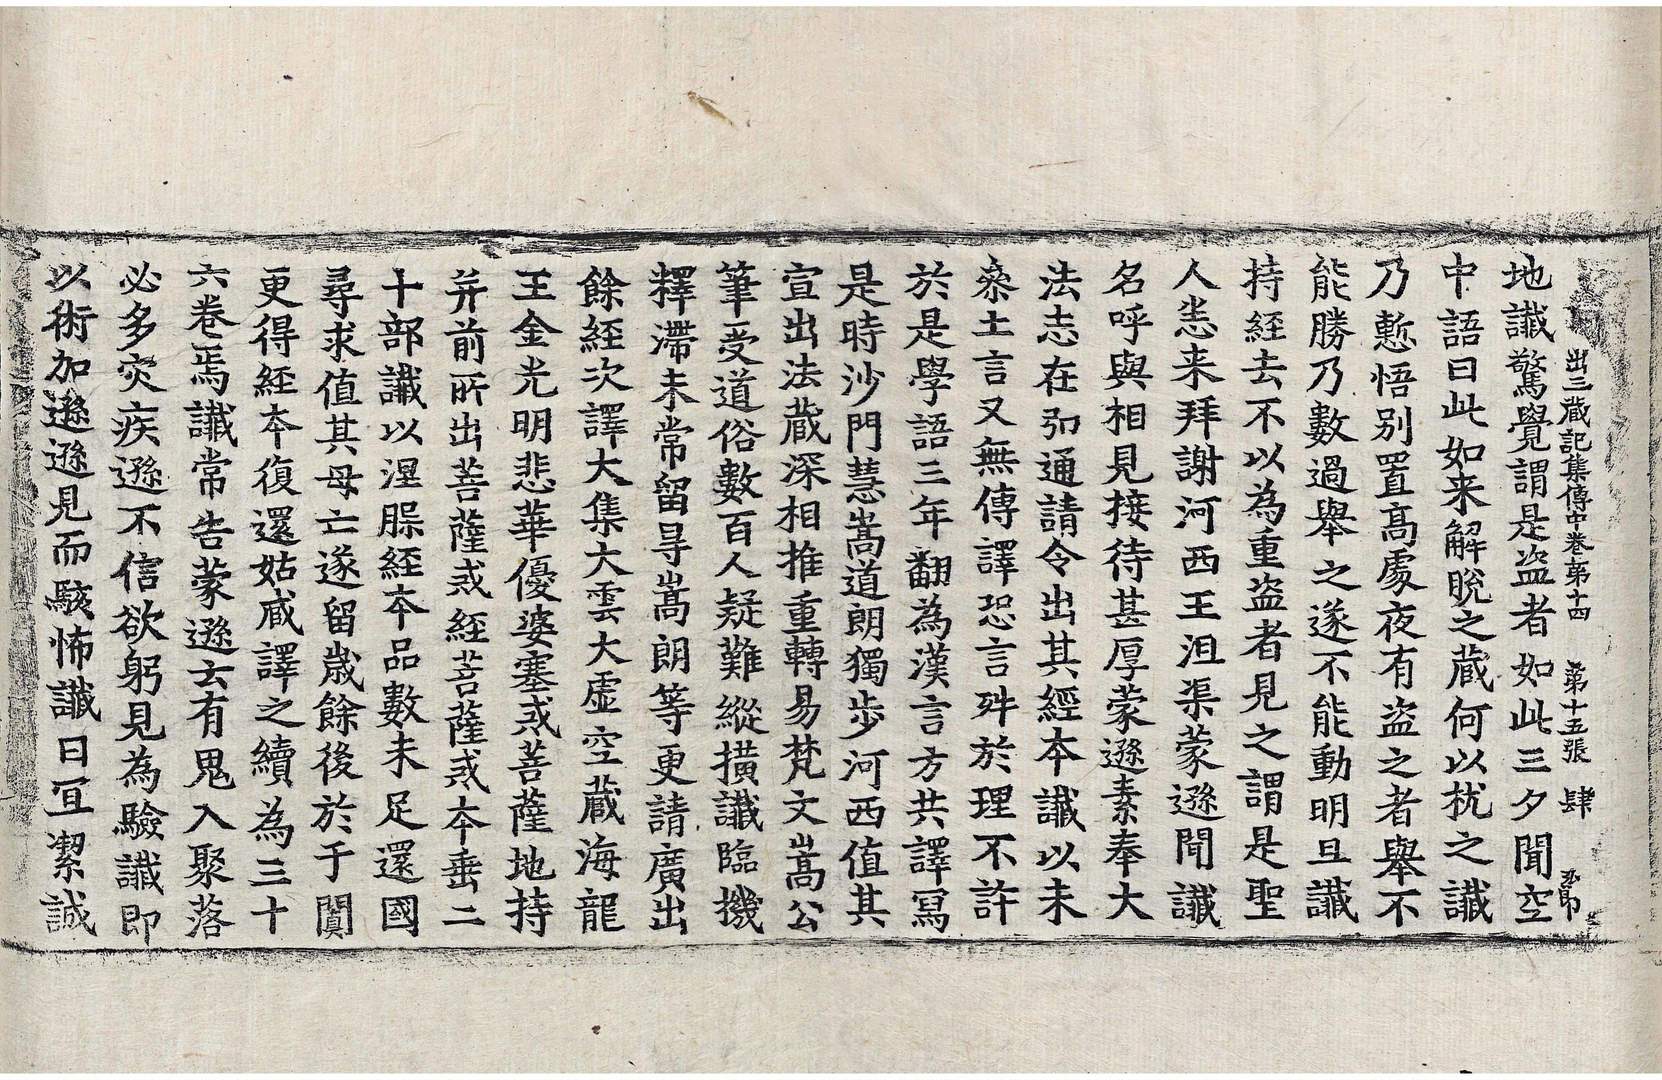 出三藏記集傳中卷第十四 第十五張 肆
地讖驚覺謂是盜者如此三夕聞空
中語曰此如来解脫之藏何以扰之讖
乃慙悟别置髙處夜有盜之者舉不
能勝乃數過舉之遂不能動明旦讖
持經去不以為重盜者見之謂是聖
人悉来拜謝河西王沮渠蒙遜聞讖
名呼與相見接待甚厚蒙遜素奉大
法志在弘通請令出其經本讖以未
叅土言又無傳譯恐言舛於理不許
於是學語三年翻為漢言方共譯寫
是時沙門慧嵩道朗獨步河西值其
宣出法藏深相推重轉易梵文嵩公
筆受道俗數百人疑難縱横讖臨機
釋滯未常留㝵嵩朗等更請廣出
餘經次譯大集大雲大虚空藏海龍
王金光明悲華優婆塞戒菩薩地持
并前所出菩薩戒經菩薩戒本垂二
十部讖以涅槃經本品數未足還國
尋求值其母亡遂留歲餘後於于闐
更得經本復還姑臧譯之續為三十
六卷焉讖常告蒙遜云有鬼入聚落
必多灾疾遜不信欲躬見為驗讖即
以術加遜遜見而駭怖讖曰冝潔誠